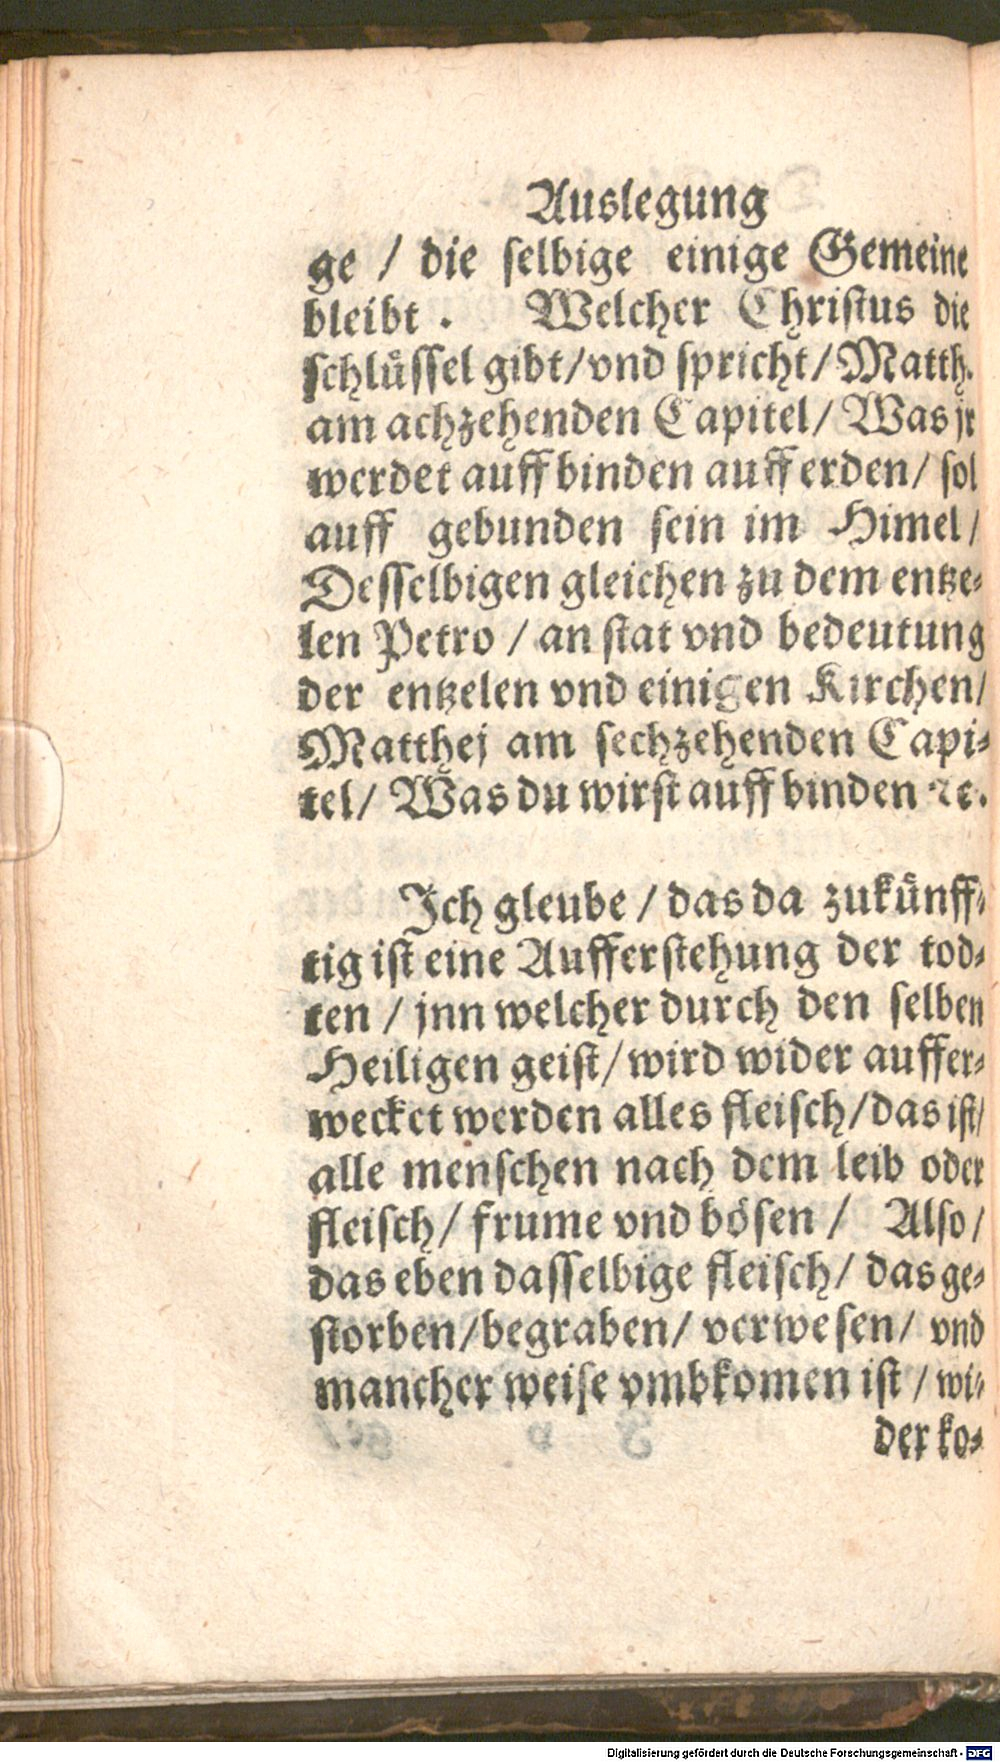 Auslegung
ge / die selbige einige Gemeine
bleibt . Welcher Christus die
schlüssel gibt/vnd spricht/Matth.
am achzehenden Capitel/ Was jr
werdet auff binden auff erden/ sol
auff gebunden sein im Himel/
Desselbigen gleichen zu dem entze-
len Petro / an stat vnd bedeutung
der entzelen vnd einigen Kirchen/
Matthej am sechzehenden Capi-
tel/ Was du wirst auff binden ⁊c.
Ich gleube / das da zukünff-
tig ist eine Aufferstehung der tod-
ten / jnn welcher durch den selben
Heiligen geist/ wird wider auffer-
wecket werden alles fleisch/das ist/
alle menschen nach dem leib oder
fleisch/ frume vnd bösen / Also/
das eben dasselbige fleisch/ das ge-
storben/begraben/ verwesen/ vnd
mancher weise vmbkomen ist / wi-
der ko-
Digitalisierung gefördert durch die Deutsche Forschungsgemeinschaft - DFG